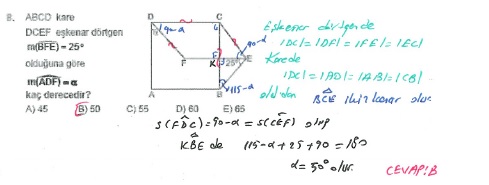 8. ABCD kare
DCEF eşkenar dörtgen
m(BFE) = 25°
olduğuna göre
m(ADF) = α
kaç derecedir?
A) 45 B) 50 C) 55 D) 60 E) 65
D C
90-α
90-α
F K 25° E
115-α
A B
Eşkenar dörtgende
|DC| = |DF| = |FE| = |EC|
Karede
|DC| = |AD| = |AB| = |CB|
olduğundan BCE ikizkenar olur.
s(FDC) = 90-α = s(CEF) olup
KBE de 115-α + 25 + 90 = 180
α = 50° olur. CEVAP: B